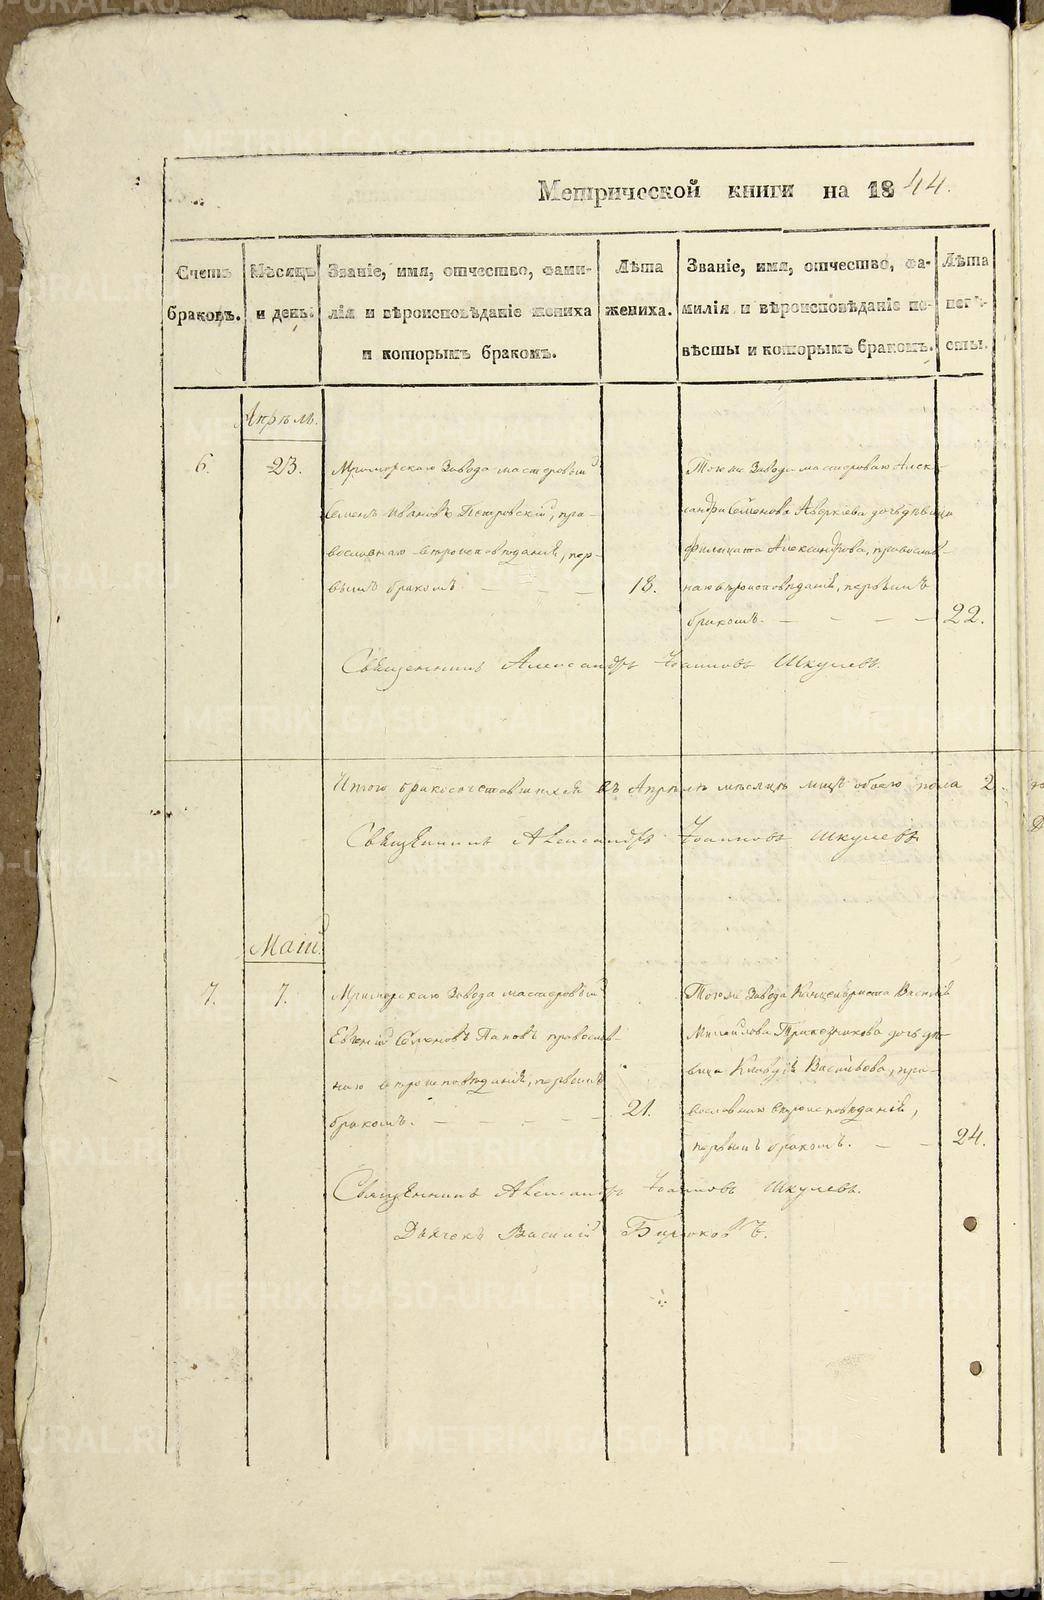 Метрической книги на 1844.
Счетъ браковъ.
Мѣсяцъ и день.
Званіе, имя, отчество, фами-
лія и вѣроисповѣданіе жениха
и которымъ бракомъ.
Лѣта жениха.
Званіе, имя, отчество, фа-
милія и вѣроисповѣданіе не-
вѣсты и которымъ бракомъ.
Лѣта невѣсты.
Апрѣль.
6.
23.
завода мастеровый
Семенъ Ивановъ Петровскій, пра-
вославнаго вѣроисповѣданія, пер-
вымъ бракомъ.
18.
Тогоже завода мастероваго Алек-
сандра Семенова Аверкіева дочь дѣвица
Филицата Александрова, православ-
наго вѣроисповѣданія, первымъ
бракомъ.
22.
Священникъ Александръ Іоанновъ Шкулевъ.
Итого бракосочетавшихся въ Апрѣлѣ мѣсяцѣ лицъ обоего пола 2.
Священникъ Александръ Іоанновъ Шкулевъ.
Маій.
7.
7.
завода мастеровый
Евгеній Семеновъ Пановъ православ-
наго вѣроисповѣданія, первымъ
бракомъ.
21.
Тогоже завода Канцеляриста Василія
Михайлова дочь дѣ-
вица Клавдія Васильева, пра-
вославнаго вѣроисповѣданія,
первымъ бракомъ.
24.
Священникъ Александръ Іоанновъ Шкулевъ.
Дьячекъ Василій Бирюковъ.
METRIKI.GASO-URAL.RU